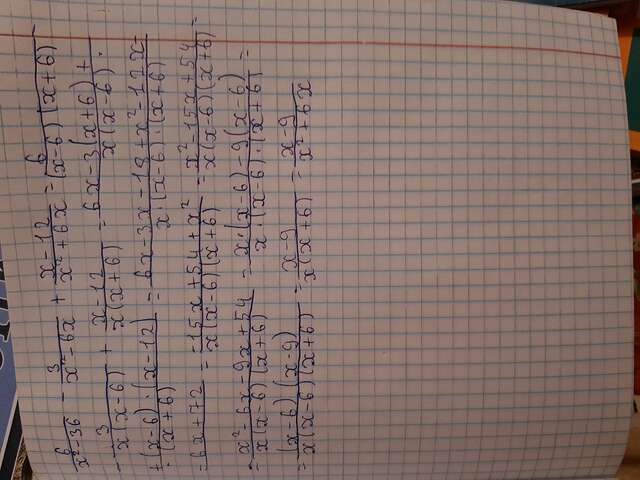 6/(x²-36) - 3/(x²-6x) + (x-12)/(x²+6x) = 6/((x-6)(x+6))
- 3/(x(x-6)) + (x-12)/(x(x+6)) = (6x-3(x+6)+)/(x(x-6)·)
(+(x-6)·(x-12))/(·(x+6)) = (6x-3x-18+x²-12x-)/(x·(x-6)·(x+6))
-6x+72 = (-15x+54+x²)/(x(x-6)(x+6)) = (x²-15x+54)/(x(x-6)(x+6)) =
= (x²-6x-9x+54)/(x(x-6)(x+6)) = (x·(x-6)-9(x-6))/(x·(x-6)·(x+6)) =
= ((x-6)(x-9))/(x(x-6)(x+6)) = (x-9)/(x(x+6)) = (x-9)/(x²+6x)